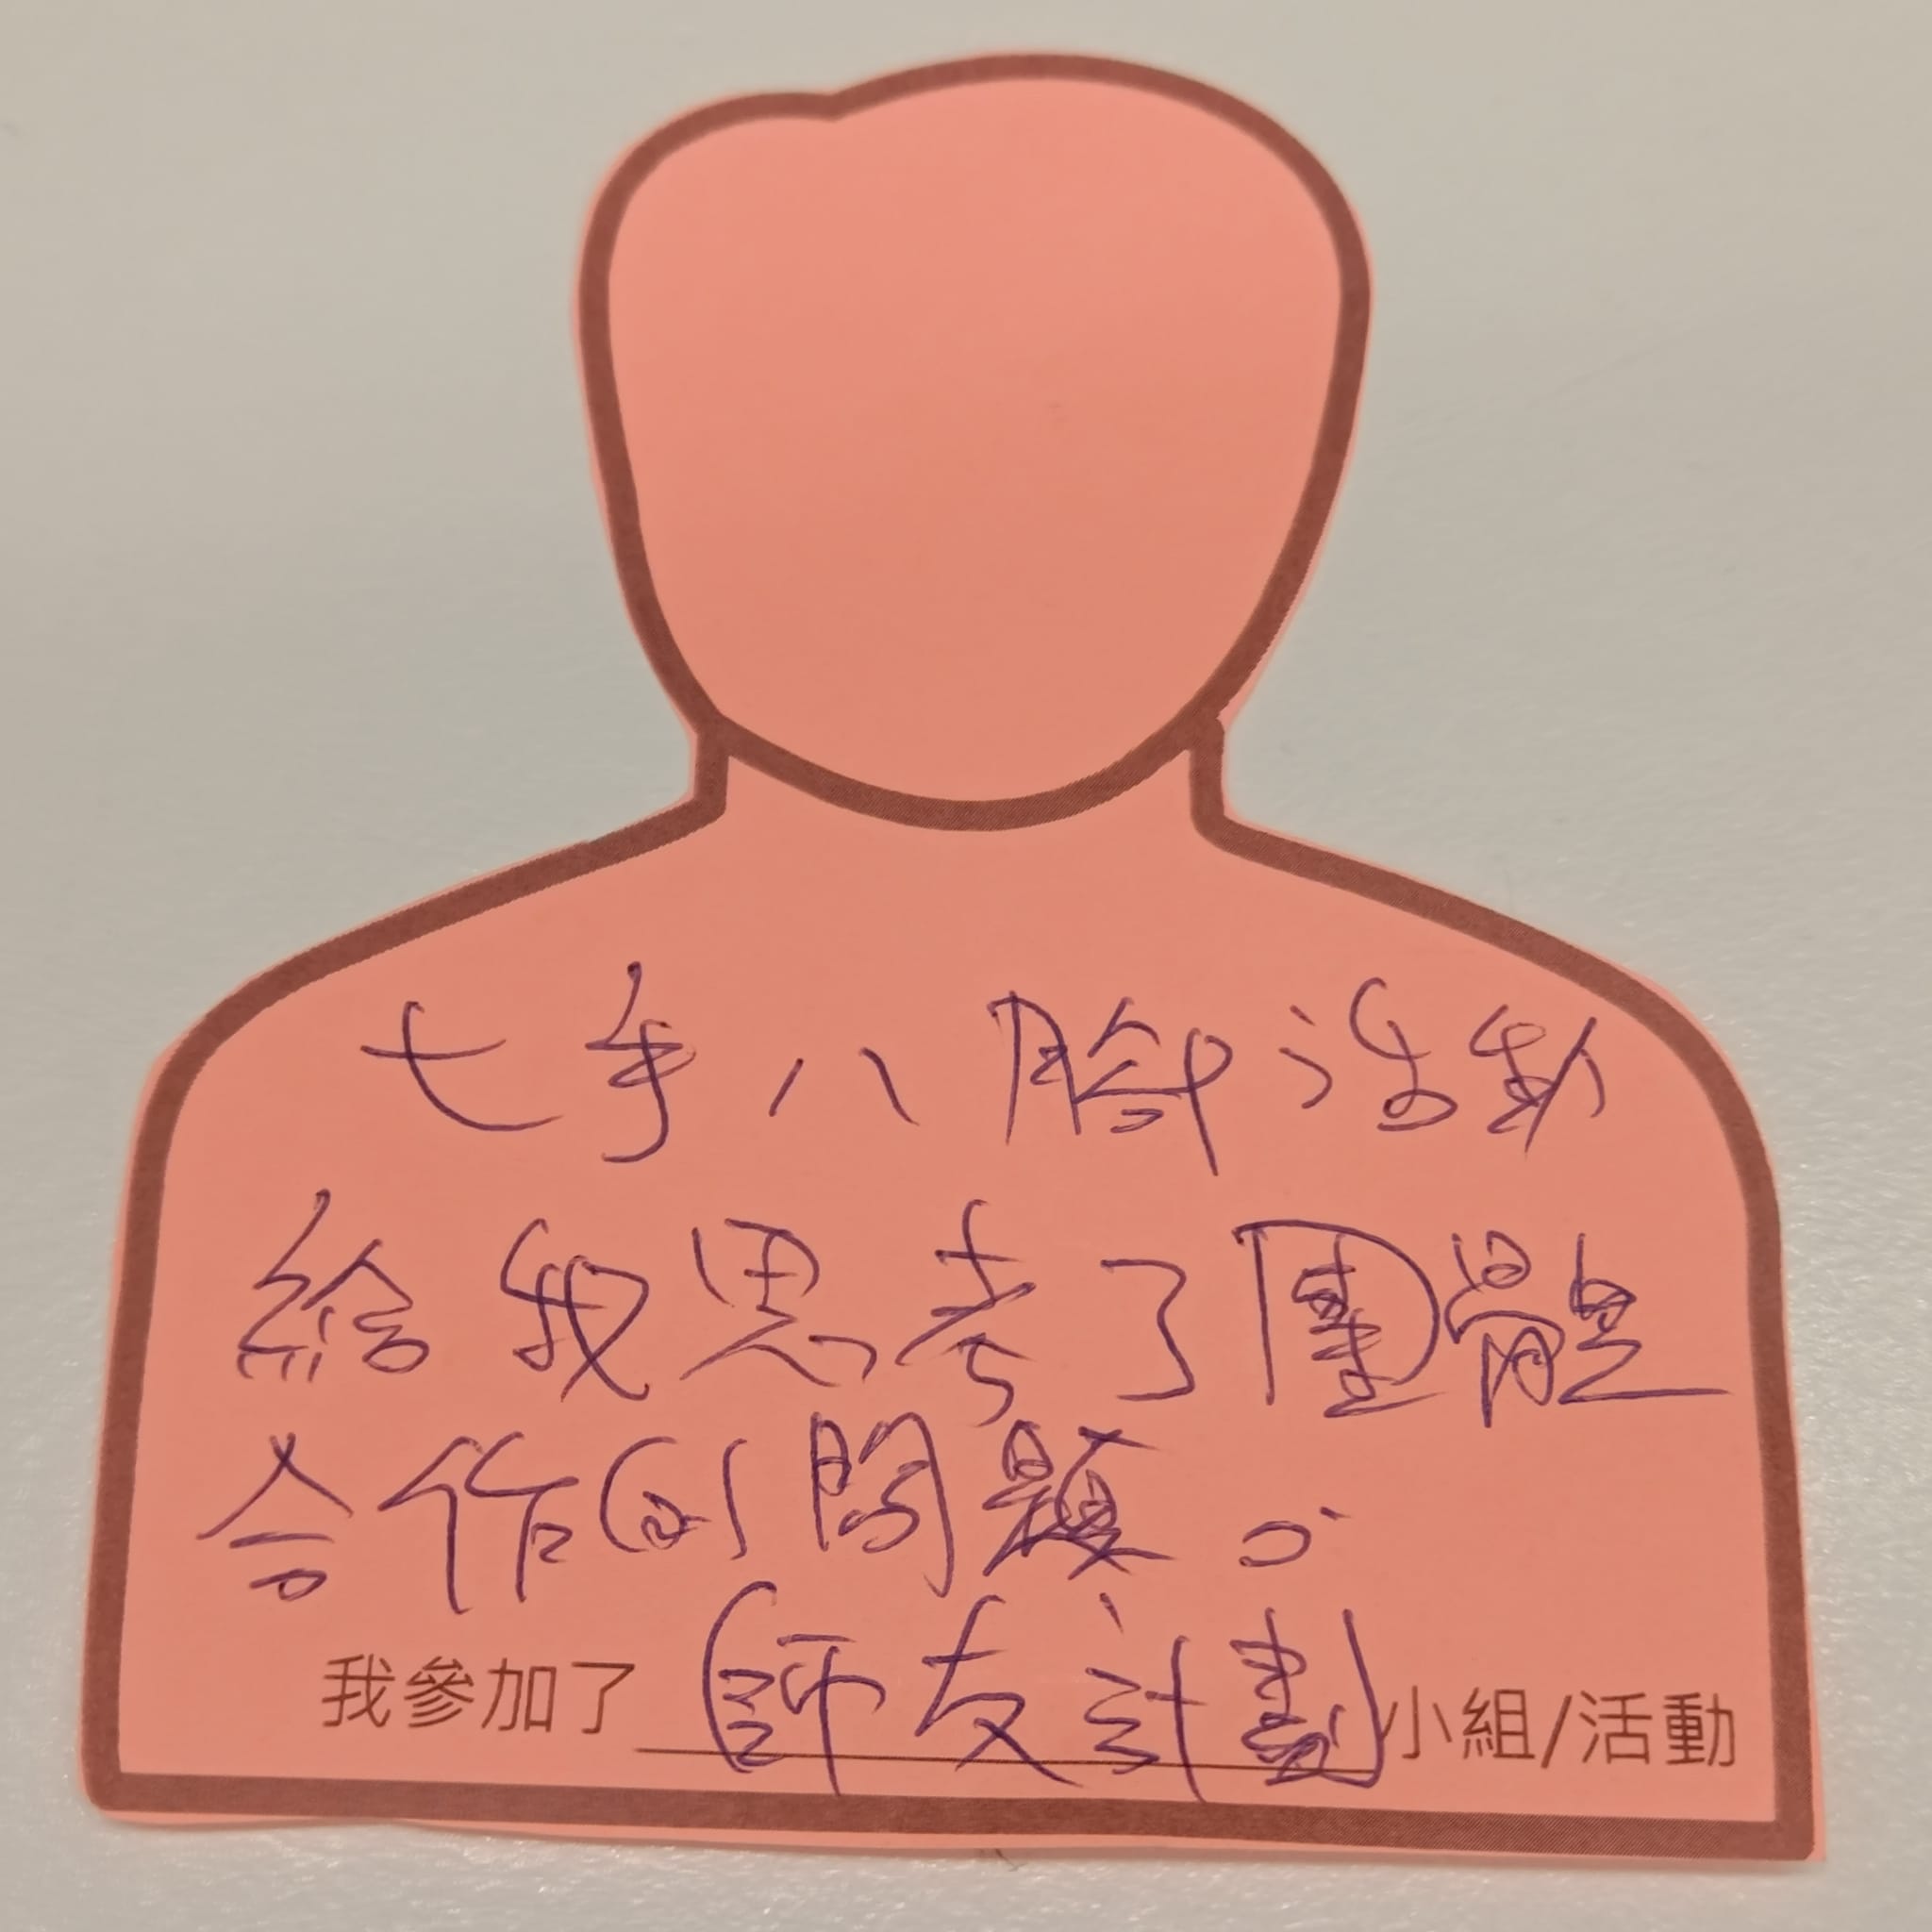 七手八腳活動
給我思考了團體
合作的問題。
我參加了 師友計劃 小組/活動